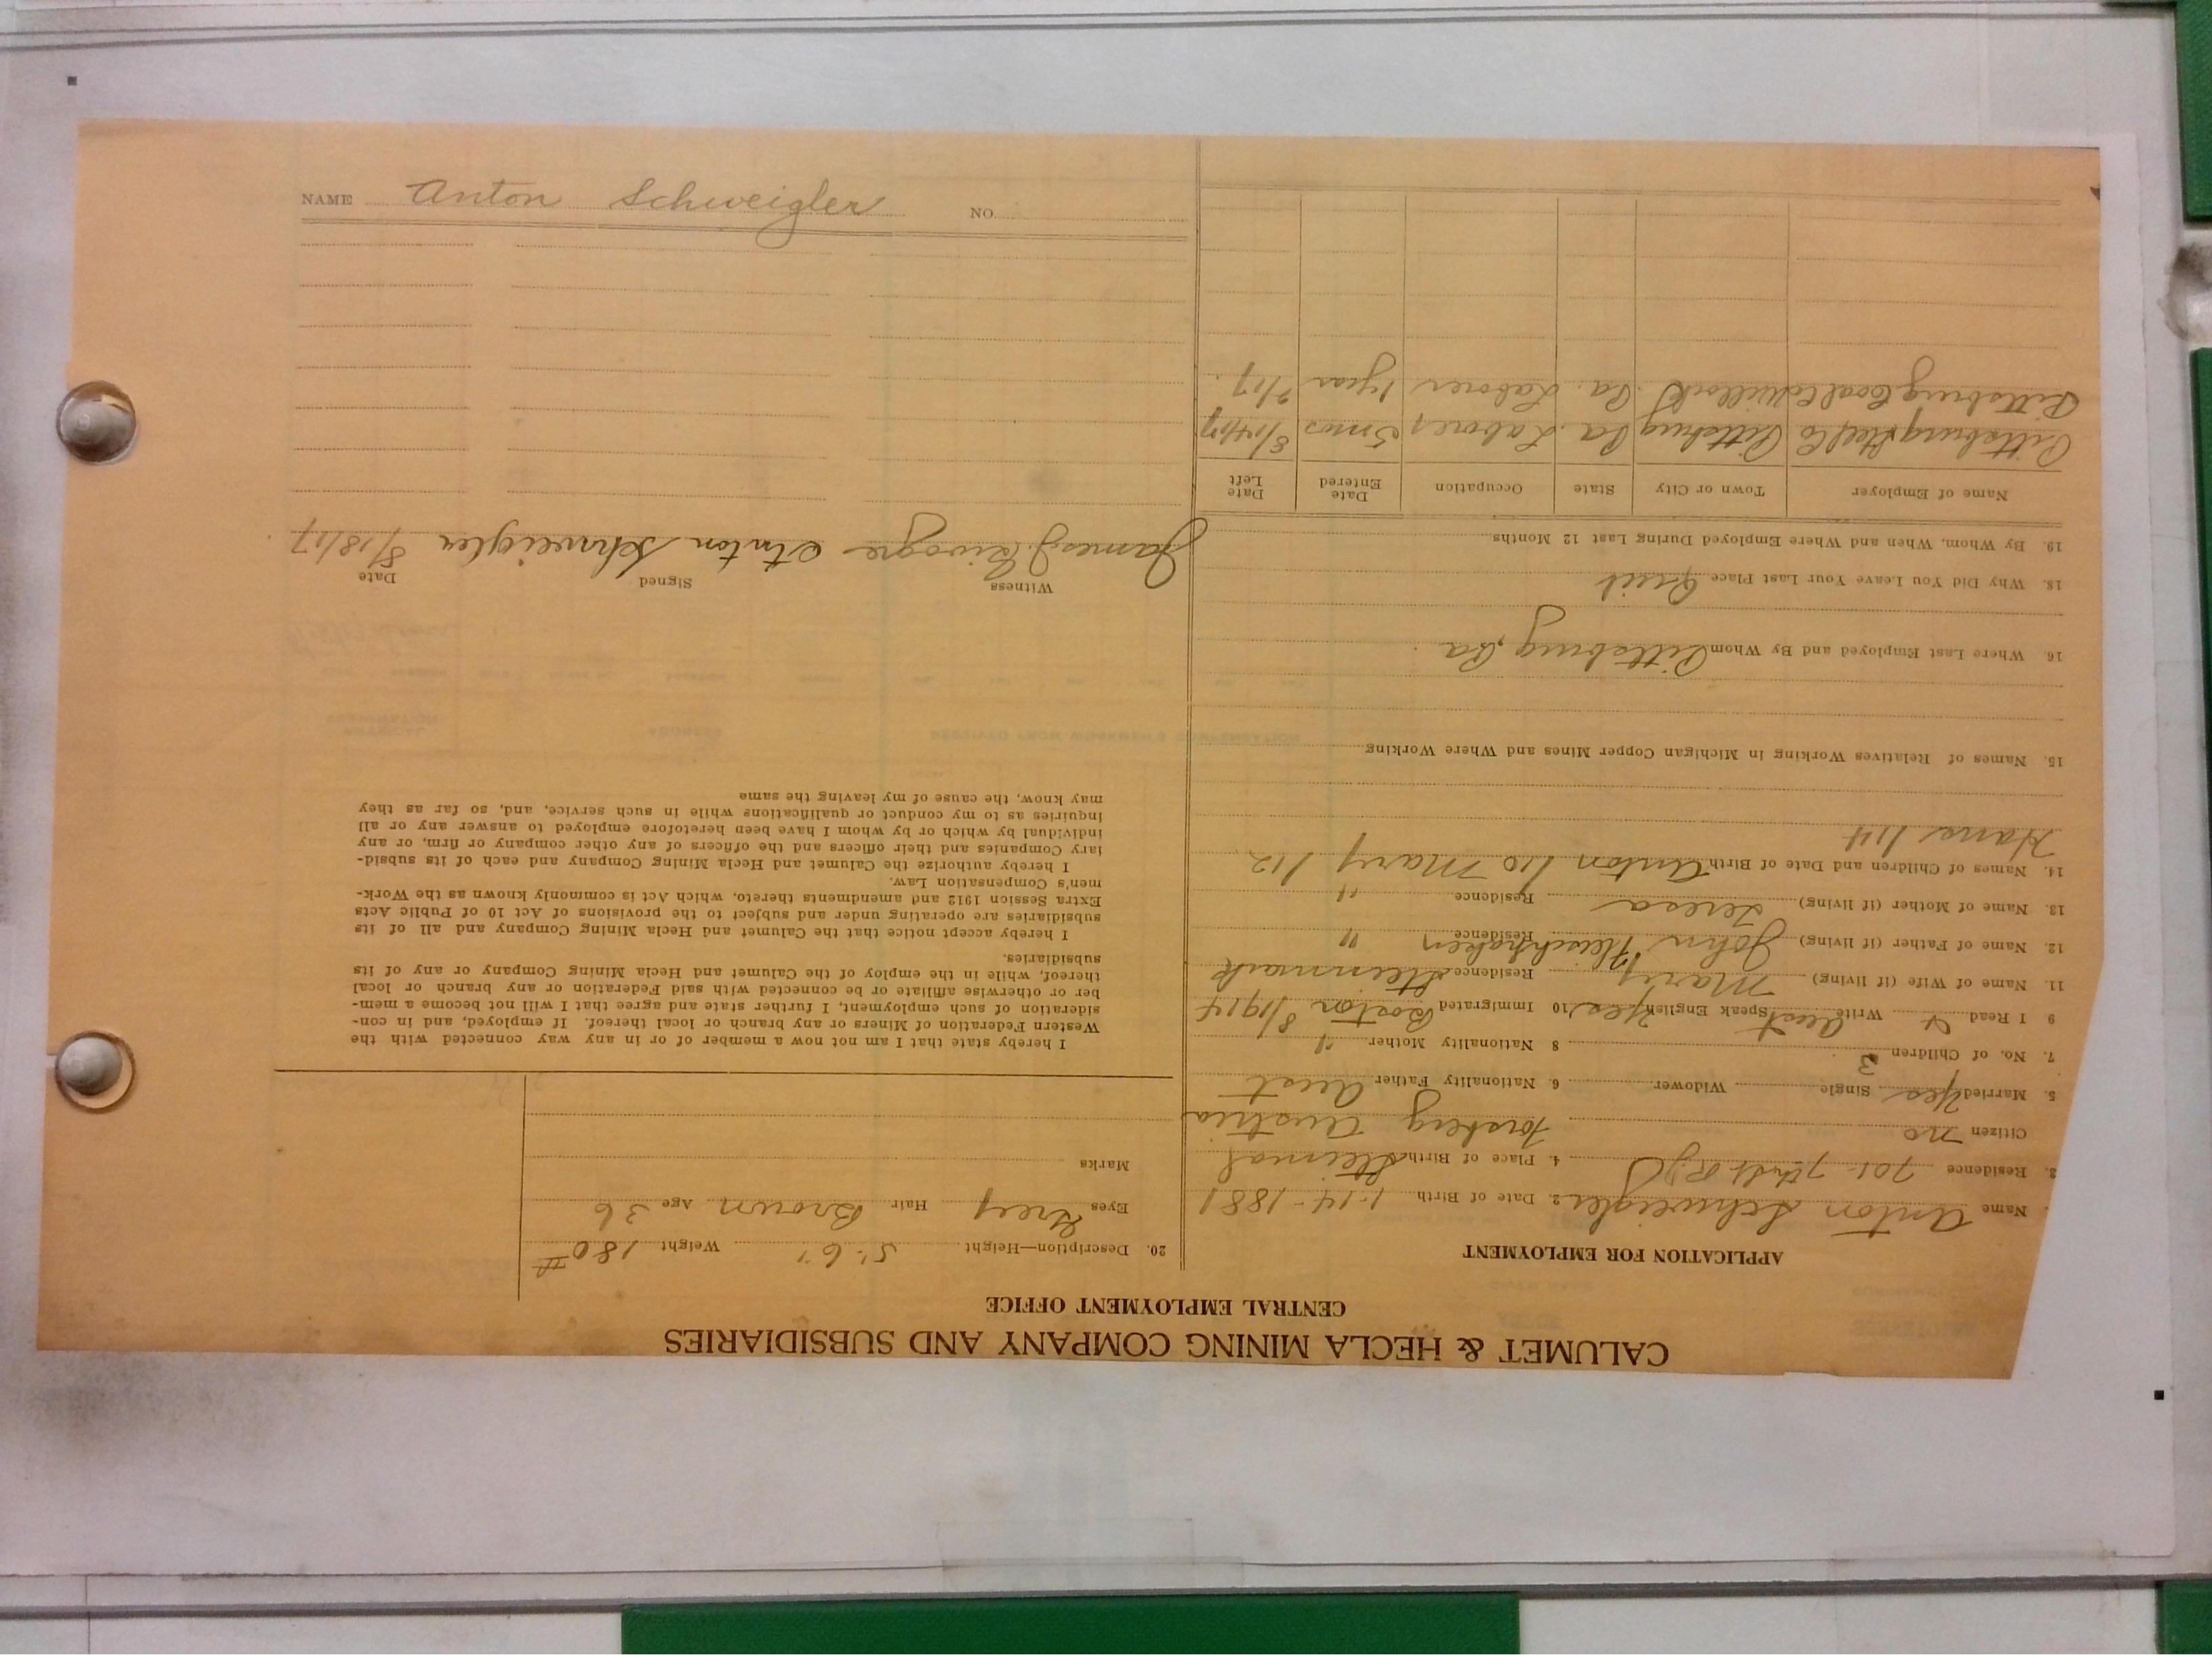 CALUMET & HECLA MINING COMPANY AND SUBSIDIARIES
CENTRAL EMPLOYMENT OFFICE
APPLICATION FOR EMPLOYMENT
Name Anton Schweigler 2. Date of Birth 1-14-1881
3. Residence 701- 7th St 4. Place of Birth
Citizen no Austria
5. Married Yes Single Widower 6. Nationality Father Aust
7. No. of Children 3 8 Nationality Mother "
9 I Read Write Aust Speak English Yes 10 Immigrated Boston 8/1914
11. Name of Wife (if living) Mary Residence Steinmark
12. Name of Father (if living) John Residence "
13. Name of Mother (if living) Teresa Residence "
14. Names of Children and Date of Birth Anton /10 Mary /12
Hans /14
15. Names of Relatives Working in Michigan Copper Mines and Where Working
16. Where Last Employed and By Whom Pittsburg, Pa
18. Why Did You Leave Your Last Place Quit
19. By Whom, When and Where Employed During Last 12 Months
Name of Employer Town or City State Occupation Date Entered Date Left
Pittsburg Steel Co Pittsburg Pa. Laborer 5 mos 8/14/17
Pittsburg Coal Co Pa. Laborer 1 year
20. Description—Height 5' 6" Weight 180#
Eyes Grey Hair Brown Age 36
Marks
I hereby state that I am not now a member of or in any way connected with the
Western Federation of Miners or any branch or local thereof. If employed, and in con-
sideration of such employment, I further state and agree that I will not become a mem-
ber or otherwise affiliate or be connected with said Federation or any branch or local
thereof, while in the employ of the Calumet and Hecla Mining Company or any of its
subsidiaries.
I hereby accept notice that the Calumet and Hecla Mining Company and all of its
subsidiaries are operating under and subject to the provisions of Act 10 of Public Acts
Extra Session 1912 and amendments thereto, which Act is commonly known as the Work-
men's Compensation Law.
I hereby authorize the Calumet and Hecla Mining Company and each of its subsid-
iary Companies and their officers and the officers of any other company or firm, or any
individual by which or by whom I have been heretofore employed to answer any or all
inquiries as to my conduct or qualifications while in such service, and, so far as they
may know, the cause of my leaving the same
Witness Signed Date
James J. Anton Schweigler 8/18/17
NAME Anton Schweigler NO.